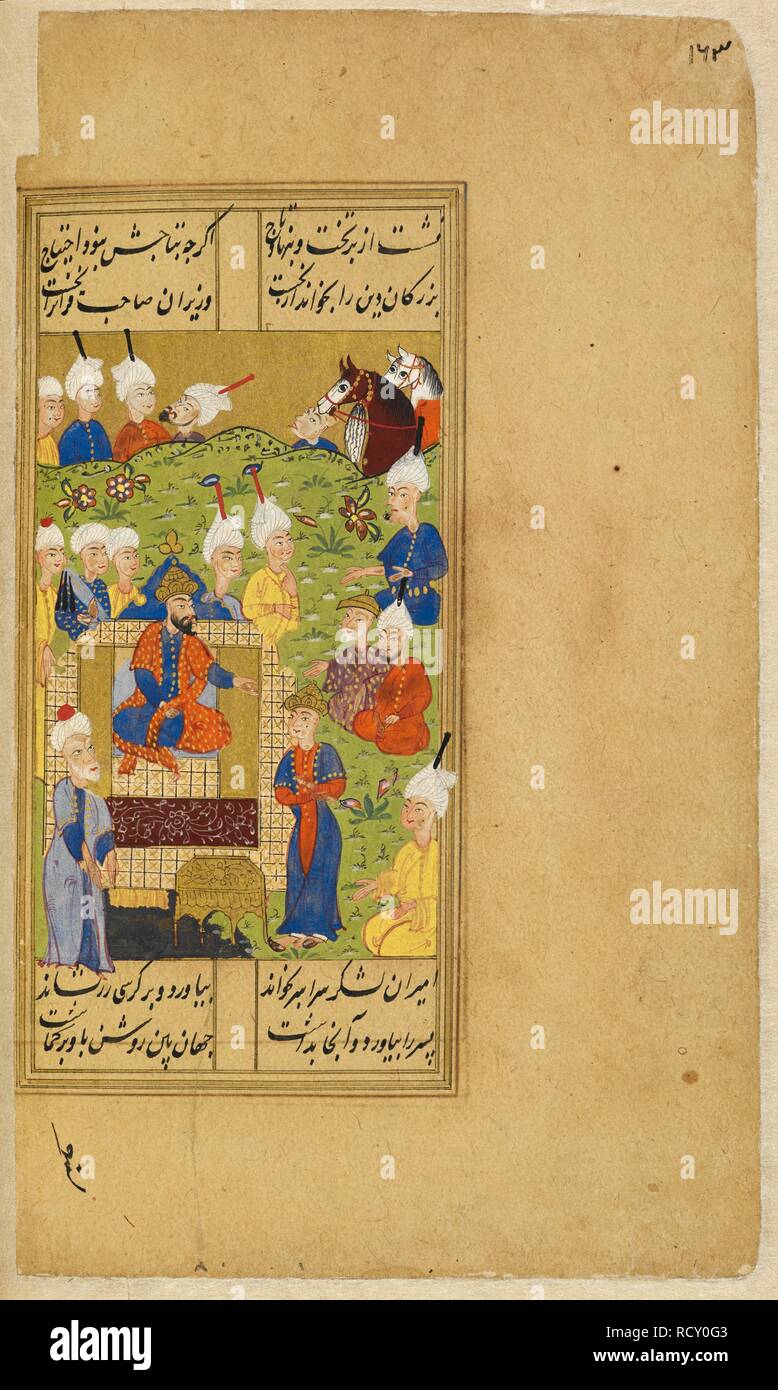 ۱۶۳
نشست از بر تخت و بنهاد تاج اگرچه بتاجش نبود احتیاج
بزرکان دین را بخواند از نخست وزیران صاحب
امیران لشکر سراسر بخواند بیاورد و بر کرسی زر نشاند
پسر را بیاورد و آنجا بداشت جهان بین روشن باو برکماشت
alamy
alamy
alamy
Image ID: RCY0G3
www.alamy.com